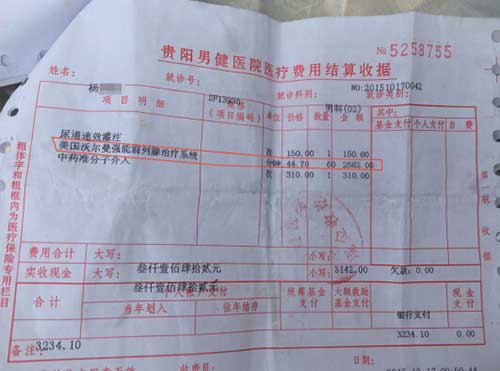 贵阳男健医院医疗费用结算收据
№5258755
姓名: 杨 就诊号: NO:201510170042
就诊科别: 男科(02) 就诊类别:
项目明细 (项目编码) 单位 价格 数量 金额 其中:
基金支付 个人支付 自费
尿道速效灌注 次 150.00 1 150.00
美国沃尔曼强能前列腺治疗系统 分钟 44.70 60 2682.00
中药准分子介入 次 310.00 1 310.00
粗体字和粗框内为医疗保险专用栏目
第一联 收据
费用合计 大写: 叁仟壹佰肆拾贰元 小写:
实收现金 大写: 叁仟壹佰肆拾贰元 小写: 3142.00 欠款: 0.00
合计 个人账户支付 统筹基金支付 大额救助基金支付 现金支付
当年划入 往年结存
银行支付
3234.10 0.00
备注: 3234.10
日期:
收费员: